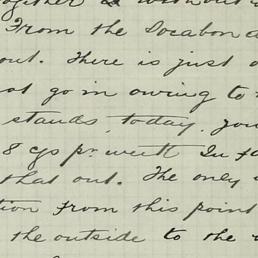 From the Socabon
out. There is just
go in owing to
stands today. you
8 cgs pr week In
that out. The only
tion from this point
the outside to the